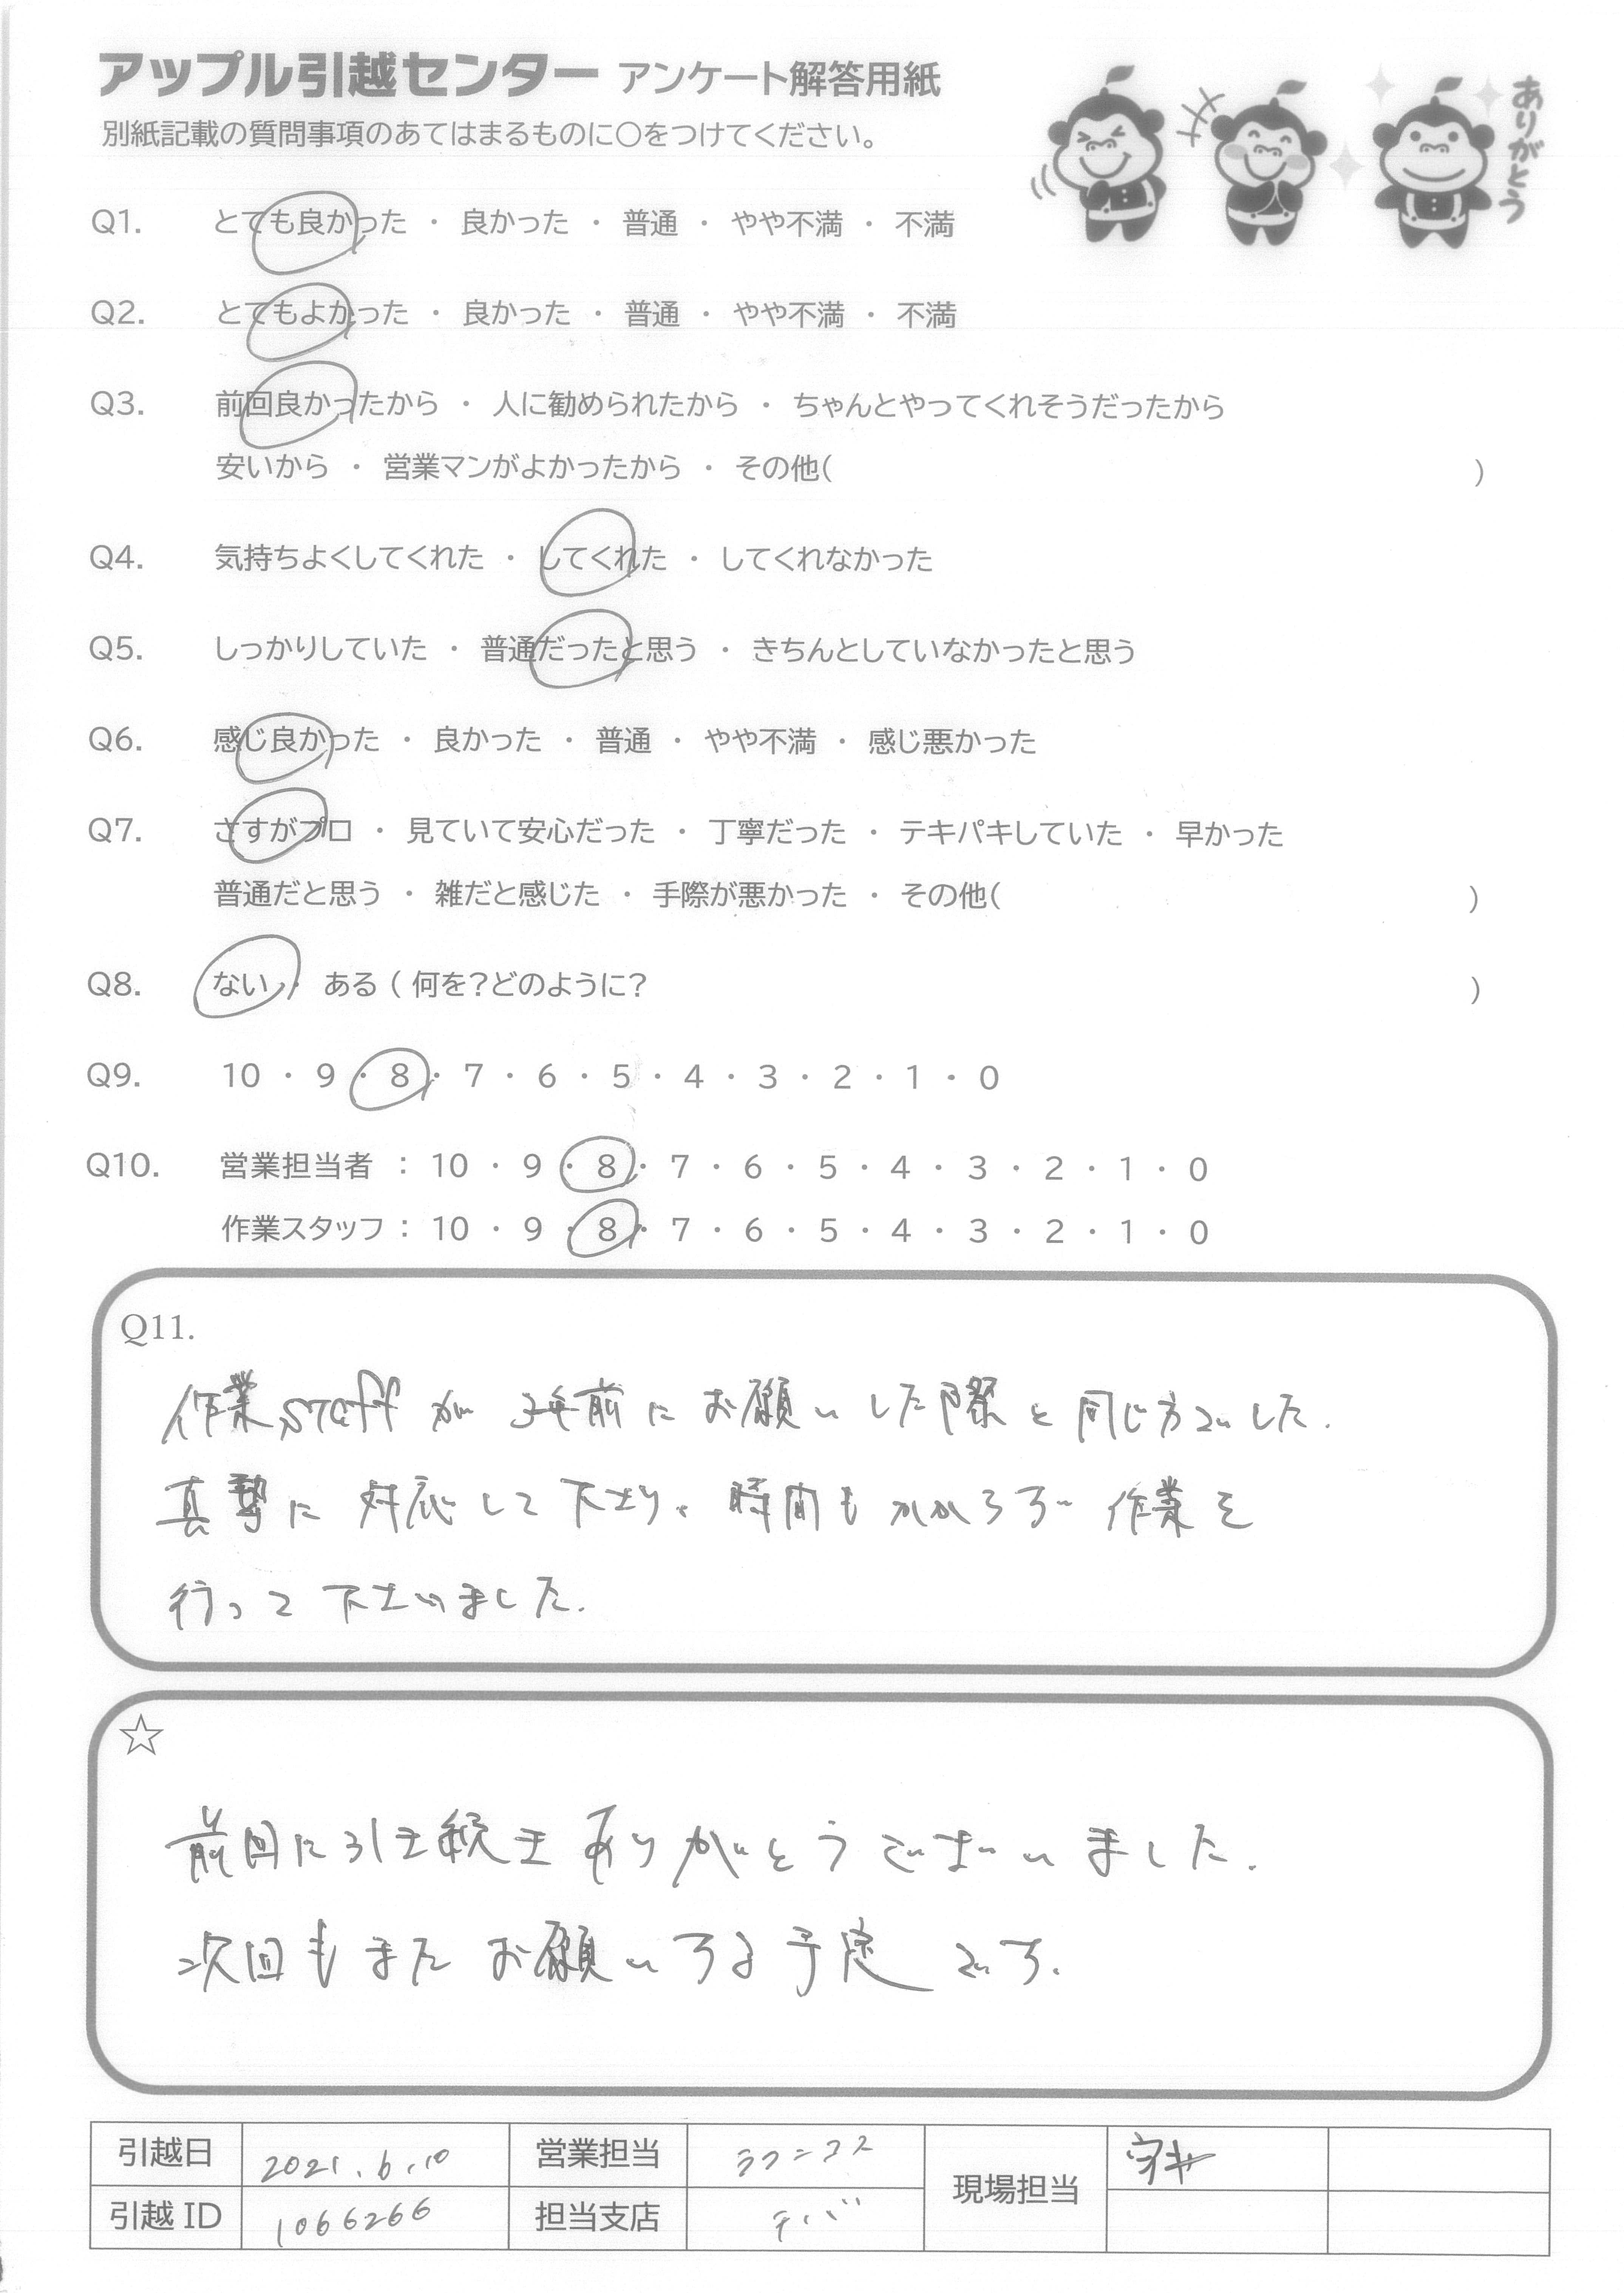 アップル引越センター アンケート解答用紙
ありがとう
別紙記載の質問事項のあてはまるものに〇をつけてください。
Q1. とても良かった ・ 良かった ・ 普通 ・ やや不満 ・ 不満
Q2. とてもよかった ・ 良かった ・ 普通 ・ やや不満 ・ 不満
Q3. 前回良かったから ・ 人に勧められたから ・ ちゃんとやってくれそうだったから
安いから ・ 営業マンがよかったから ・ その他( )
Q4. 気持ちよくしてくれた ・ してくれた ・ してくれなかった
Q5. しっかりしていた ・ 普通だったと思う ・ きちんとしていなかったと思う
Q6. 感じ良かった ・ 良かった ・ 普通 ・ やや不満 ・ 感じ悪かった
Q7. さすがプロ ・ 見ていて安心だった ・ 丁寧だった ・ テキパキしていた ・ 早かった
普通だと思う ・ 雑だと感じた ・ 手際が悪かった ・ その他( )
Q8. ない ・ ある ( 何を?どのように? )
Q9. 10 ・ 9 ・ 8 ・ 7 ・ 6 ・ 5 ・ 4 ・ 3 ・ 2 ・ 1 ・ 0
Q10. 営業担当者 : 10 ・ 9 ・ 8 ・ 7 ・ 6 ・ 5 ・ 4 ・ 3 ・ 2 ・ 1 ・ 0
作業スタッフ : 10 ・ 9 ・ 8 ・ 7 ・ 6 ・ 5 ・ 4 ・ 3 ・ 2 ・ 1 ・ 0
Q11.
作業staffが 3年前にお願いした際と同じ方でした.
真摯に対応して下さり、時間もかからず作業を
行って下さいました.
☆
前回に引き続きありがとうございました.
次回もまたお願いする予定です.
引越日 2021.6.10 営業担当 現場担当
引越ID 1066266 担当支店 チバ